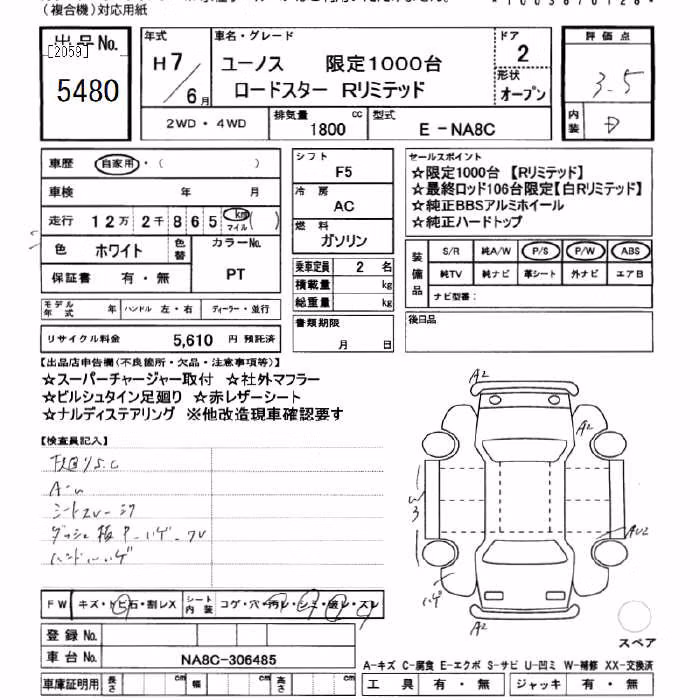 (複合機)対応用紙
出品No.
[2059]
5480
年式
H7/6月
車名・グレード
ユーノス 限定1000台
ロードスター Rリミテッド
ドア
2
形状
オープン
評価点
3.5
内装
D
2WD・4WD
排気量
1800
cc
型式
E-NA8C
車歴
自家用・( )
車検
年 月
走行
12万2千865
km
マイル
( )
色
ホワイト
色替
カラーNo.
PT
保証書
有・無
モデル年式
年
ハンドル 左・右
ディーラー・並行
リサイクル料金
5,610 円 預託済
シフト
F5
冷房
AC
燃料
ガソリン
乗車定員 2 名
積載量 kg
総重量 kg
書類期限
月 日
セールスポイント
☆限定1000台 【Rリミテッド】
☆最終ロッド106台限定【白Rリミテッド】
☆純正BBSアルミホイール
☆純正ハードトップ
装備品
S/R 純A/W P/S P/W ABS
純TV 純ナビ 革シート 外ナビ エアB
ナビ型番:
後日品
【出品店申告欄(不良箇所・欠品・注意事項等)】
☆スーパーチャージャー取付 ☆社外マフラー
☆ビルシュタイン足廻り ☆赤レザーシート
☆ナルディステアリング ※他改造現車確認要す
【検査員記入】
A-u
シートスレ
ハンドルハゲ
A2
A2
AU2
ハゲ
A2
スペア
FW
キズ・トビ石・割レX
シート内装
コゲ・穴・汚レ・シミ・破レ・スレ
登録No.
車台No.
NA8C-306485
車庫証明用
長さ cm 幅 cm 高さ cm
A-キズ C-腐食 E-エクボ S-サビ U-凹ミ W-補修 XX-交換済
工具 有・無 ジャッキ 有・無